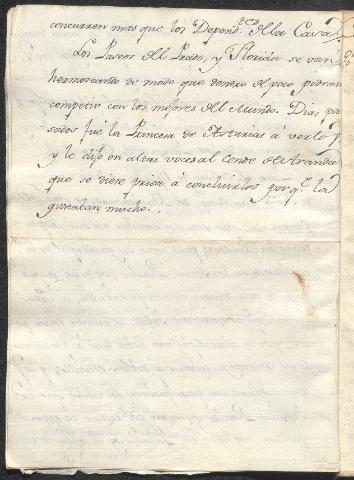 concurren mas que los Depend.tes de la Casa.
Los Paseos del Prado, y Florida se van
hermoseando de modo que dentro de poco podran
competir con los mejores del Mundo. Dias pa-
sados fue la Princesa de Asturias à verlos,
y le dijo en altas voces al Conde de Aranda
que se diese prisa à concluirlos porq.e la
gustaban mucho.